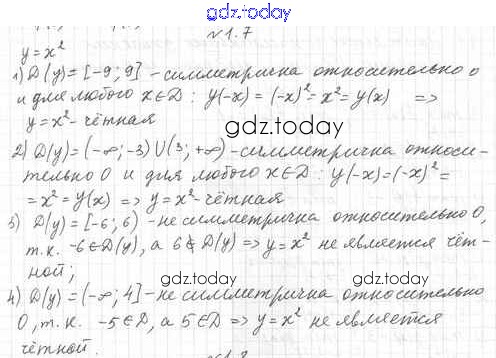 gdz.today
№1.7
y = x²
1) D(y) = [-9; 9] - симметрична относительно 0
и для любого x∈D : y(-x) = (-x)² = x² = y(x) =>
y = x² - чётная
gdz.today
2) D(y) = (-∞; -3) U (3; +∞) - симметрична относи-
тельно 0 и для любого x∈D : y(-x) = (-x)² =
= x² = y(x) => y = x² - чётная
gdz.today
3) D(y) = [-6; 6) - не симметрична относительно 0,
т.к. -6∈D(y), а 6∉D(y) => y = x² не является чёт-
ной;
gdz.today
4) D(y) = (-∞; 4] - не симметрична относительно
0, т.к. -5∈D, а 5∉D => y = x² не является
чётной.
gdz.today